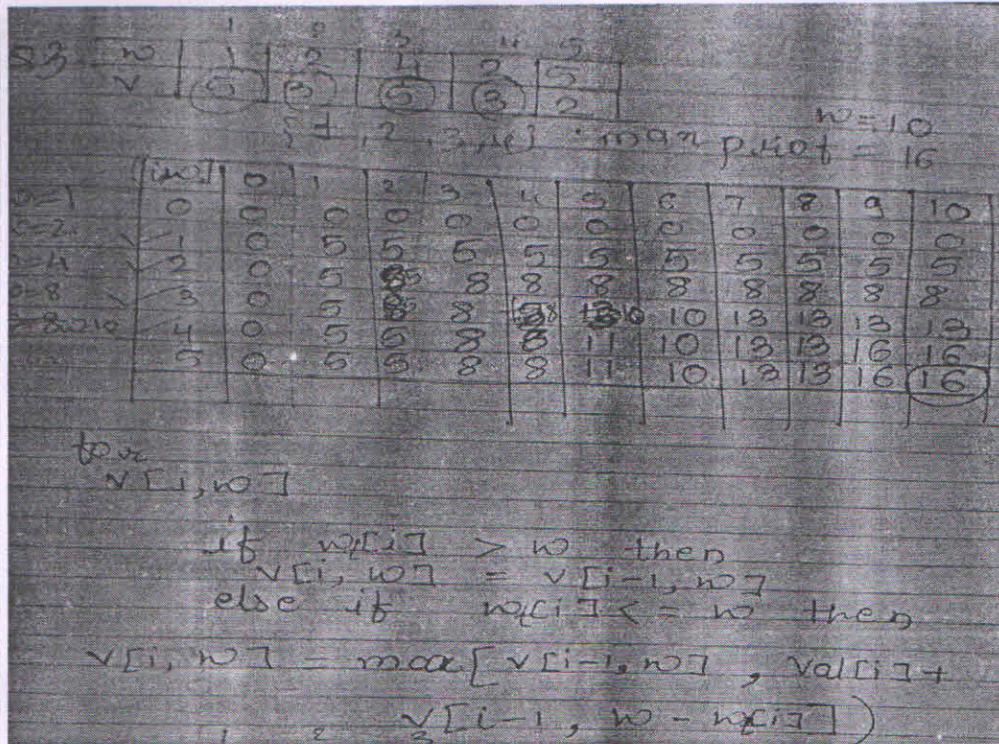 1 2 3 4 5
53 w 1 2 4 2 5
v 5 3 5 3 2
w=10
{1, 2, 3, 4} max priof = 16
[i,w] 0 1 2 3 4 5 6 7 8 9 10
0 0 0 0 0 0 0 0 0 0 0 0
1 0 5 5 5 5 5 5 5 5 5 5
2 0 5 5 8 8 8 8 8 8 8 8
3 0 5 8 10 13 13 13 13
4 0 5 5 8 8 11 10 13 13 16 16
5 0 5 5 8 8 11 10 13 13 16 16
for
v[i,w]
if wt[i] > w then
v[i, w] = v[i-1, w]
else if wt[i] <= w then
v[i, w] = max[v[i-1, w] , val[i]+
v[i-1, w - wt[i]])
1 2 3